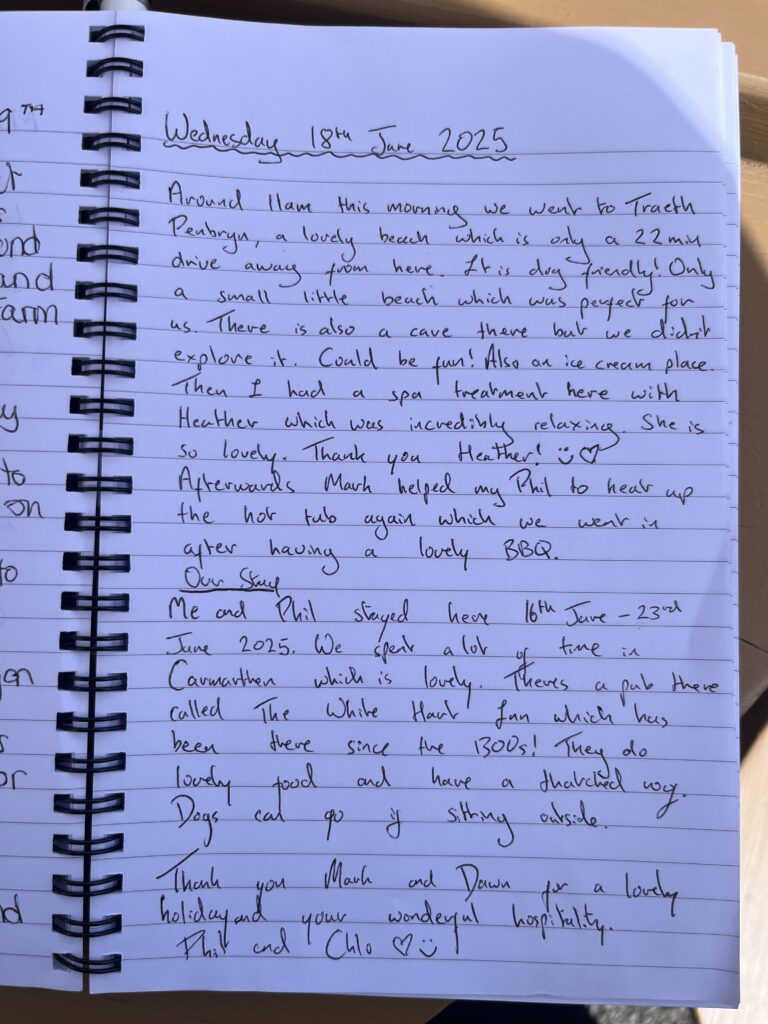 9TH
ond
and
arm
y
to
on
to
en
s
or
nd
Wednesday 18th June 2025
Around 11am this morning we went to Traeth
Penbryn, a lovely beach which is only a 22 min
drive away from here. It is dog friendly! Only
a small little beach which was perfect for
us. There is also a cave there but we didn't
explore it. Could be fun! Also an ice cream place.
Then I had a spa treatment here with
Heather which was incredibly relaxing. She is
so lovely. Thank you Heather! ☺♡
Afterwards Mark helped my Phil to heat up
the hot tub again which we went in
after having a lovely BBQ.
Our Stay
Me and Phil stayed here 16th June - 23rd
June 2025. We spent a lot of time in
Carmarthen which is lovely. Theres a pub there
called The White Hart Inn which has
been there since the 1300s! They do
lovely food and have a thatched roof.
Dogs can go if sitting outside.
Thank you Mark and Dawn for a lovely
holiday and your wonderful hospitality.
Phil and Chlo ♡☺